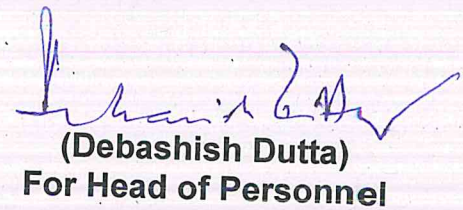 (Debashish Dutta)
For Head of Personnel